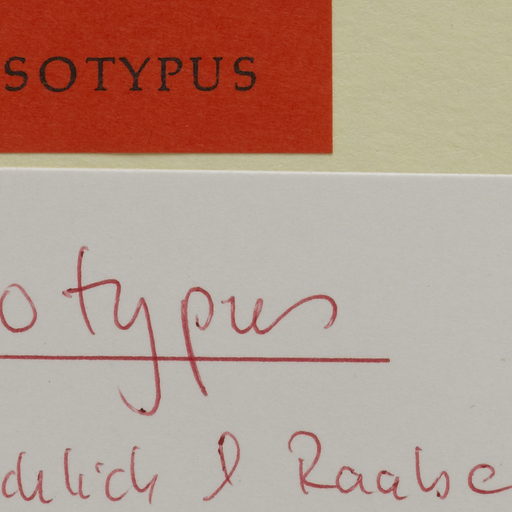 SOTYPUS
otypus
dlich & Raabe